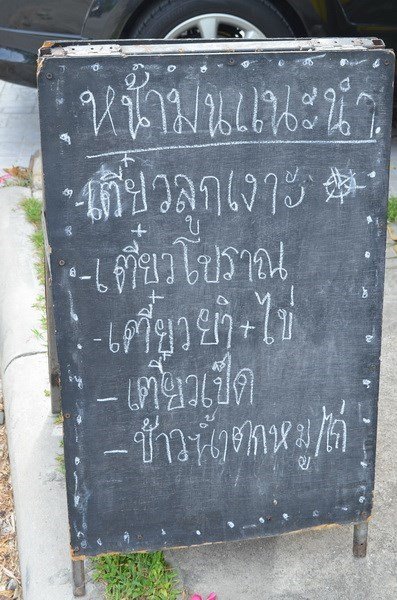 หน้ามนแนะนำ
-เตี๋ยวลูกเงาะ
-เตี๋ยวโบราณ
-เตี๋ยวยำ+ไข่
-เตี๋ยวเป็ด
-ข้าวน้ำตกหมู/ไก่